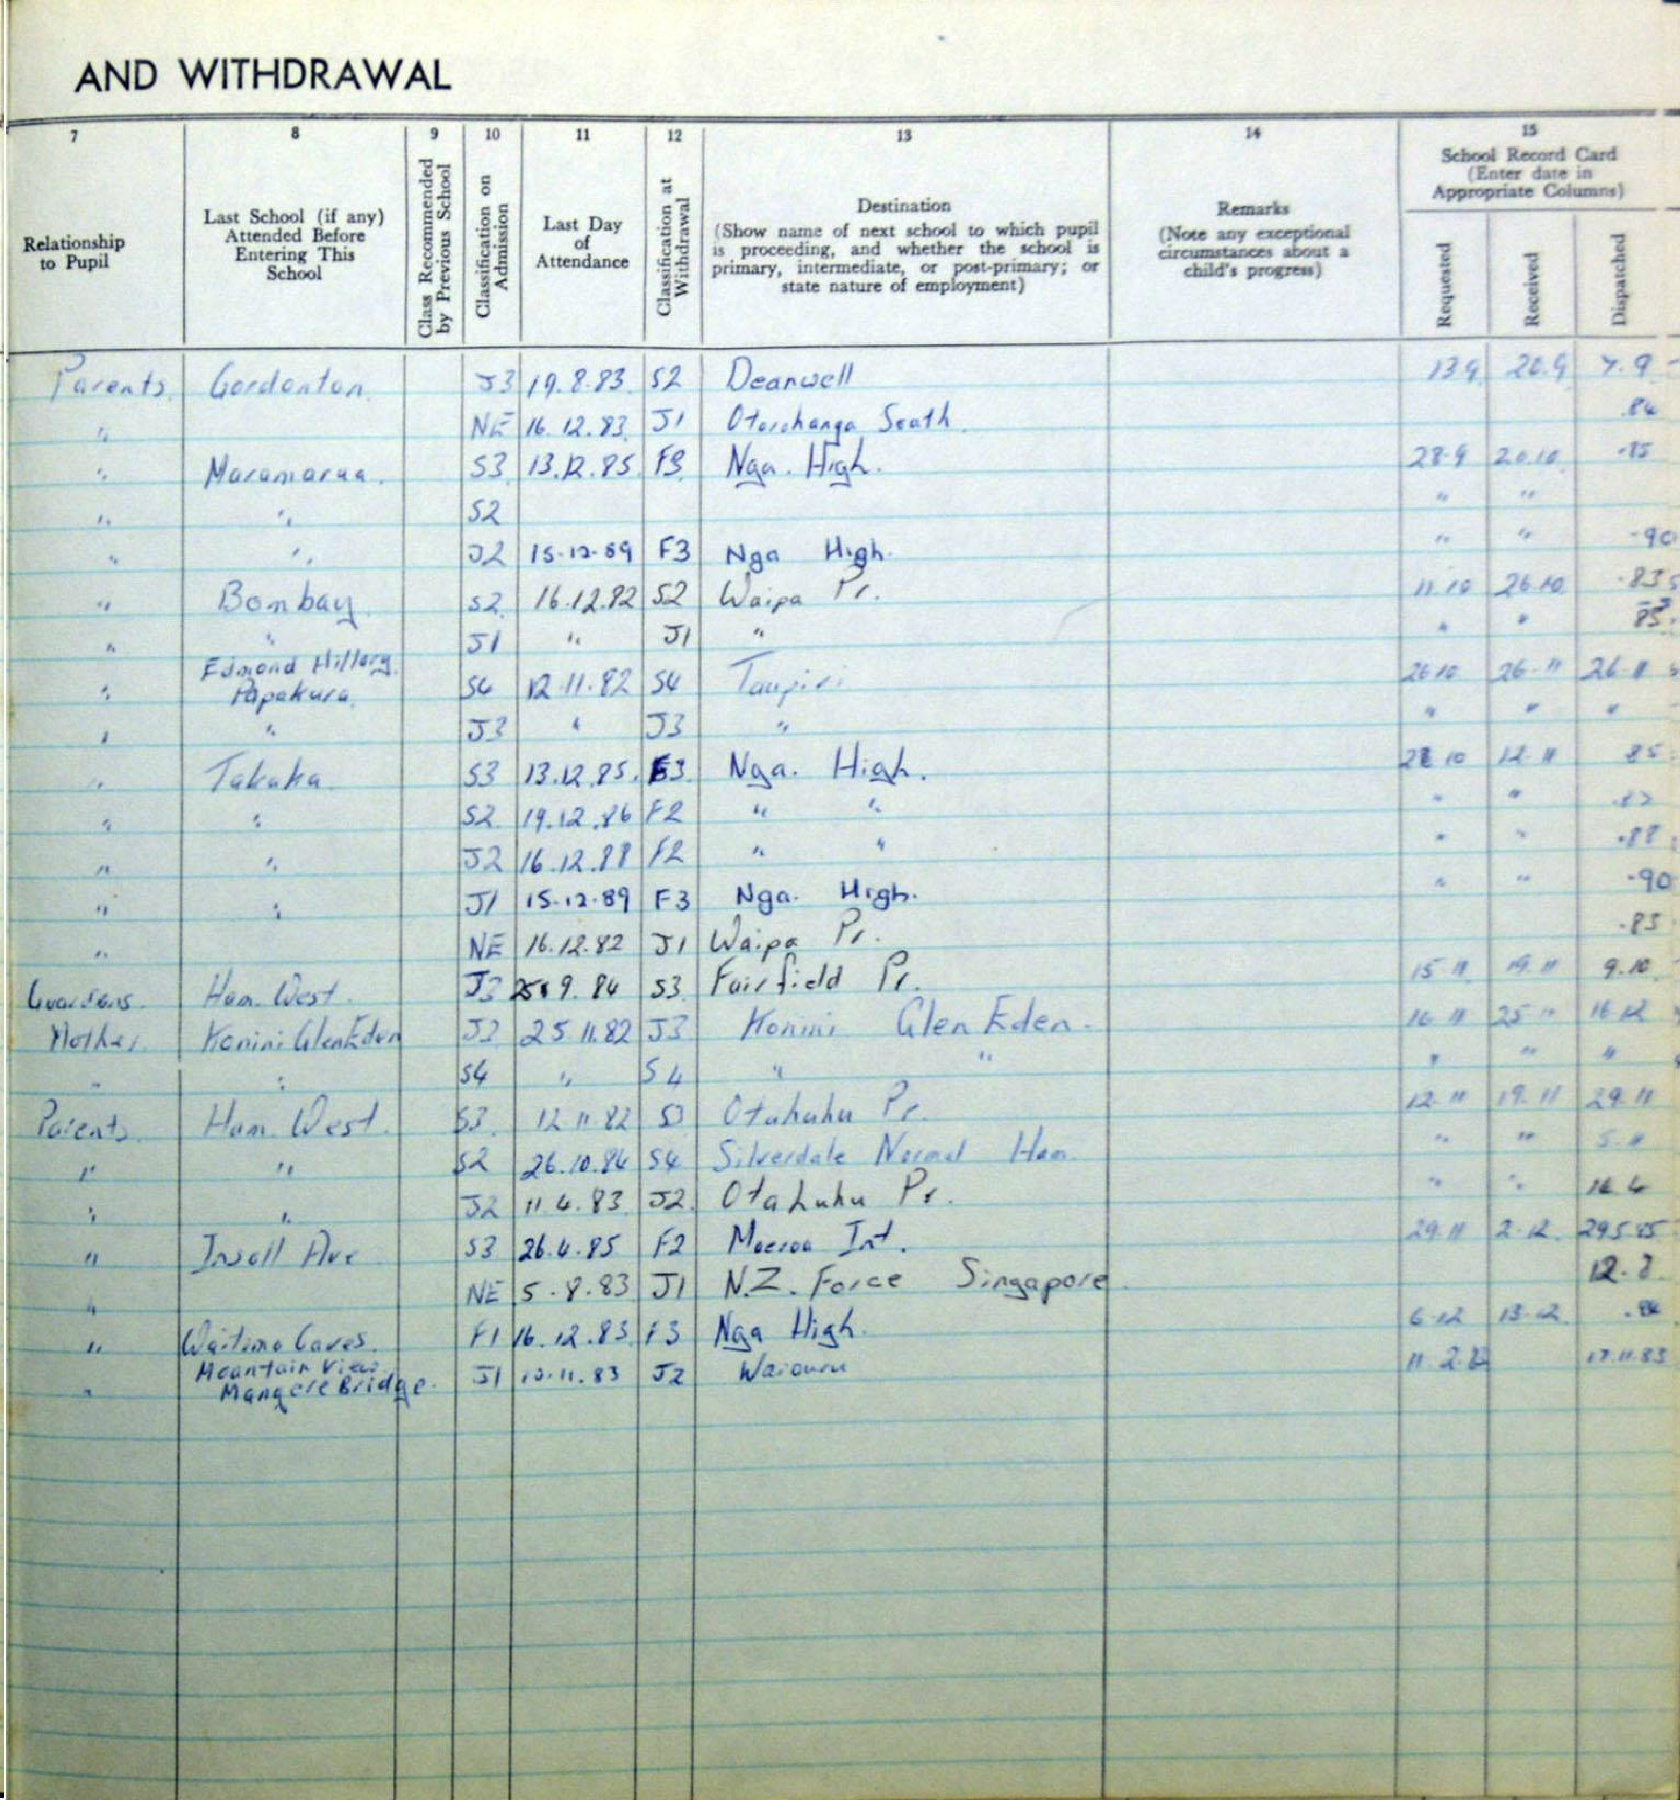 AND WITHDRAWAL
7 8 9 10 11 12 13 14 15
Relationship to Pupil
Last School (if any) Attended Before Entering This School
Class Recommended by Previous School
Classification on Admission
Last Day of Attendance
Classification at Withdrawal
Destination
(Show name of next school to which pupil is proceeding, and whether the school is primary, intermediate, or post-primary; or state nature of employment)
Remarks
(Note any exceptional circumstances about a child's progress)
School Record Card
(Enter date in Appropriate Columns)
Requested Received Dispatched
Parents Gordonton J3 19.8.83 S2 Deanwell 13 9 20.9 7.9
" NE 16.12.83 J1 Otorohanga South .84
" Maramarua S3 13.12.85 F3 Nga. High. 28.9 20.10 .85
" " S2 " "
" " J2 15-12-89 F3 Nga High. " " -90
" Bombay S2 16.12.82 S2 Waipa Pr. 11 10 26.10 .83
" " J1 " J1 " " " 83
Edmond Hillary
" Papakura S4 12.11.82 S4 Taupiri 26 10 26-11 26 11
" " J3 " J3 " " " "
" Takaka S3 13.12.85 F3 Nga. High. 10 12 11 85
" " S2 19.12.86 F2 " " " "
" " J2 16.12.88 F2 " " " " .88
" " J1 15-12-89 F3 Nga. High. " " -90
" NE 16.12.82 J1 Waipa Pr. .83
Guardians Ham. West. J3 9.84 S3 Fairfield Pr. 15 11 19 11 9.10
Mother Konini Glen Eden J3 25 11.82 J3 Konini Glen Eden. 16 11 25 " 16 12
" " S4 " S4 " " " " "
Parents Ham. West. S3 12 11 82 S3 Otahuhu Pr. 12 11 19.11 29.11
" " S2 26.10.84 S4 Silverdale Normal Ham " " 5.11
" " J2 11.4.83 J2 Otahuhu Pr. " " 4
" Insoll Ave S3 26.4.85 F2 Maeroa Int. 29.11 2.12 29.5.85
" NE 5.8.83 J1 N.Z. Force Singapore. 12.8
" Waitomo Caves. F1 16.12.83 F3 Nga High. 6 12 13-12 .84
Mountain View
" Mangere Bridge. J1 11.83 J2 Waiouru 11.2 17.11.83